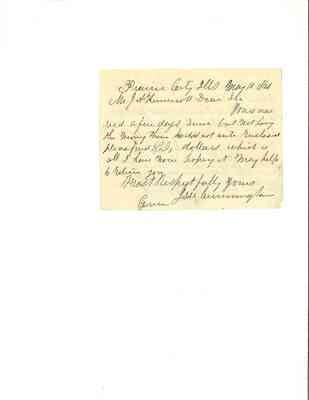 Prairie City Ills May 10
Mr J A Dear Sir
Yours was
recd a few days since but not having
the money then so did not write Enclosed
please find dollars which is
all I have now hoping it may help
to relieve you
Most Respectfully Yours